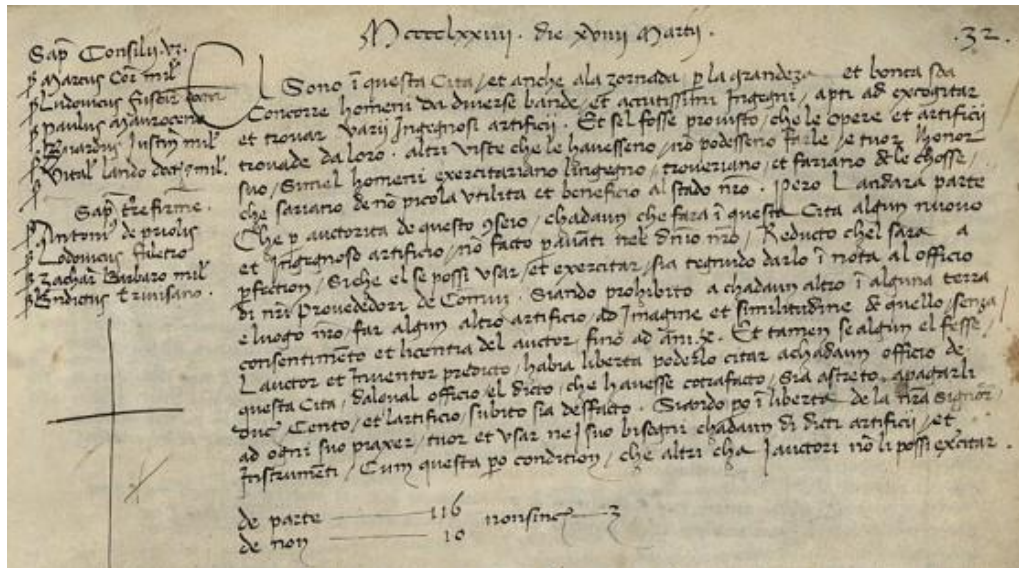 Mccccclxxiiii. die xviiii Martii.
.32.
Sap̃ Consilii
p̃ Marcus Cor̃ mil̃
p̃ Ludovicus
p̃ Paulus Maurocenꝰ
mil̃
p̃ Vital̃ lando mil̃.
p̃
Sap̃ t̃re firme.
p̃ Antoni' de priolis
p̃ Lodovicus faletro
p̃ Zachar̃ Barbaro mil̃
p̃ Bndictus trivisano.
El Sono ĩ questa Cita / et anche ala zornada p̃ la grandeza et bonta soa
Concorre homeni da diverse bande / et acutissimi Ingegni / apti ad excogitar
et trovar varii Ingegnosi artificii. Et sel fosse provisto / che le opere et artificii
trovade da loro. altri viste che le havesseno / nõ podesseno farle / e tuor l honor
suo / Simel homeni exercitariano lingegno / troveriano / et fariano dele chosse /
che sariano de nõ picola utilita et beneficio al stado nr̃o. Pero L andara parte
Che p̃ auctorita de questo 9seio / chadaun che fara ĩ questa Cita algun nuovo
et Ingegnoso artificio / nõ facto p̃ avanti nel dñio nr̃o / Reducto chel sara a
p̃fection / Siche el se possi usar / et exercitar / sia tegnudo darlo ĩ nota al officio
di nr̃i Provededori de Comun. Siando prohibito a chadaun altro ĩ alguna terra
e luogo nr̃o / far algun altro artificio / ad Imagine et similitudine de quello / senza
consentimẽto et licentia del auctor / fino ad ani .X. Et tamen se algun el fesse /
L auctor et Inventor predicto / habia liberta poderlo citar a chadaun officio de
questa Cita / dal qual officio / el dicto / che havesse cõtrafacto / Sia astreto apagarli
duc' Cento / et lartificio / subito sia desfacto. Siando po ĩ liberta de la nr̃a Signor̃
ad ogni suo piaxer / tuor et usar nei suo bisogni chadaun di dicti artificii / et
Instrumẽti / Cum questa po condition / che altri cha i auctori nõ li possi exercitar.
de parte 116
de non 10
non sinc̃ 3